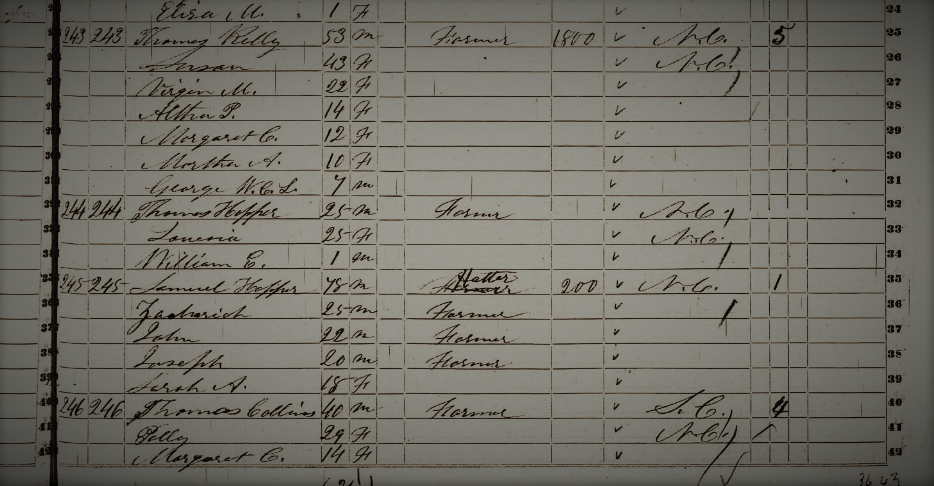 Eliza M. 1 F 24
243 243 Thomas Kelly 53 m Farmer 1800 N.C. 5 25
Susan 43 F N.C. 26
Virgin M. 22 F 27
Altha P. 14 F 28
Margaret C. 12 F 29
Martha A. 10 F 30
George W.C.L. 7 m 31
32 244 244 Thomas Hopper 25 m Farmer N.C. 32
33 25 F N.C. 33
34 William C. 1 m 34
35 245 245 Samuel Hopper 78 m Hatter 200 N.C. 1 35
36 Zacherich 25 m Farmer 36
37 John 22 m Farmer 37
38 Joseph 20 m Farmer 38
39 Sarah A. 18 F 39
40 246 246 Thomas Collins 40 m Farmer S.C. 4 40
41 Polly 29 F N.C. 41
42 Margaret C. 14 F 42